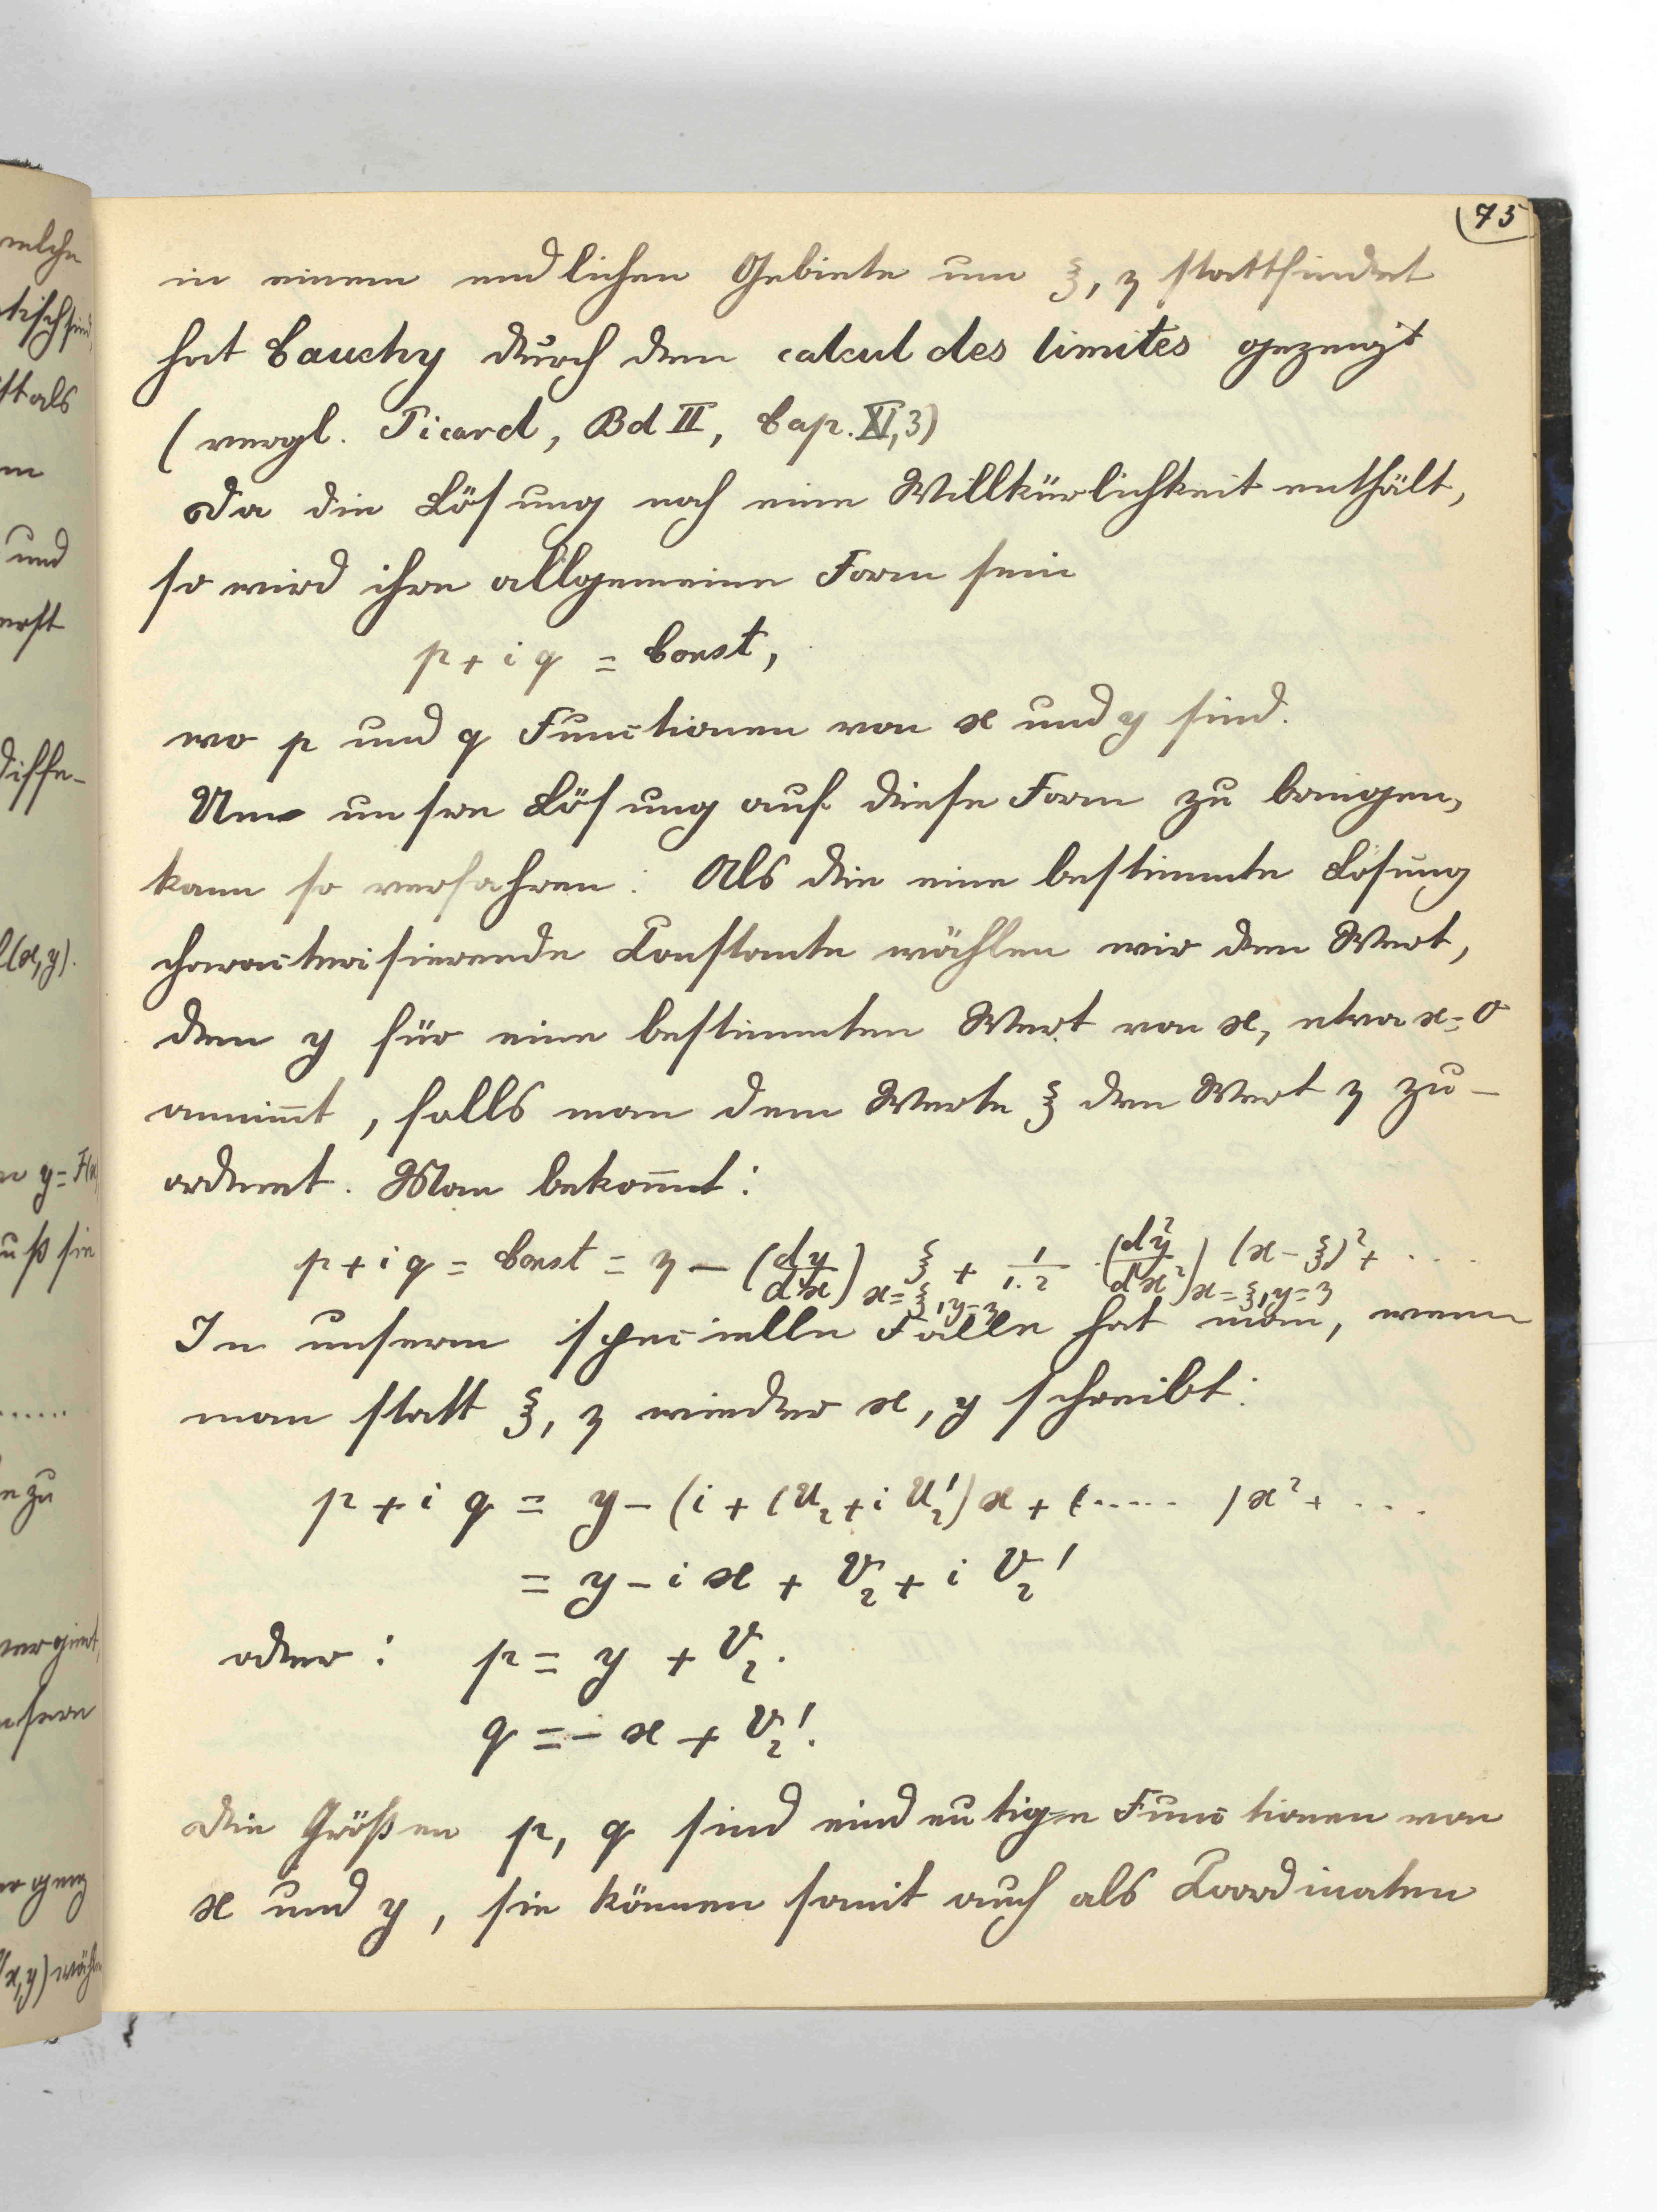 (75
in einem endlichen Gebiete um ξ, η stattfindet
hat Cauchy durch den calcul des limites gezeigt
(vergl. Picard, Bd II, Cap. XI,3)
Da die Lösung noch eine Willkürlichkeit enthält,
so wird ihre allgemeine Form sein
p + i q = Const,
wo p und q Functionen von x und y sind.
Um unsere Lösung auf diese Form zu bringen,
kann so verfahren: Als die eine bestimmte Lösung
characterisierende Constante wählen wir den Wert,
den y für eine bestimmten Wert von x, etwa x=0
annimmt, falls man dem Werte ξ den Wert η zu-
ordnet. Man bekommt:
p + i q = Const = η - (dy/dx)_{x=ξ,y=η} ξ + 1/1.2 (d²y/dx²)_{x=ξ,y=η} (x-ξ)² + ....
In unserm specielle Falle hat man, wenn
man statt ξ, η wieder x, y schreibt:
p + i q = y - (i + (U₂ + i U₂') x + (..... ) x² + ...
= y - i x + V₂ + i V₂'
oder: p = y + V₂.
q = - x + V₂'.
Die Größen p, q sind eindeutige Functionen von
x und y, sie können somit auch als Coordinaten
welche
tisch sind,
st als
und
erst
diffe-
l(x,y).
y = F(x
uß sie
.....
zu
sern
x,y) wähl